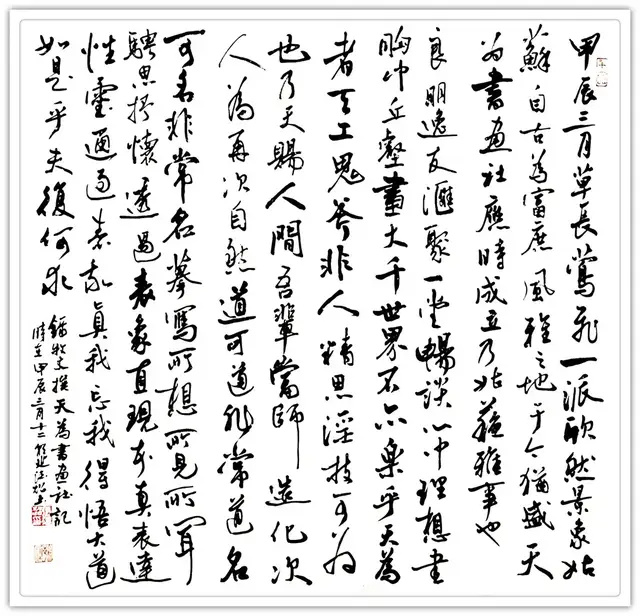 甲辰三月草長鶯飛一派欣然景象姑
蘇自古為富庶風雅之地于今猶盛天
為書畫社應時成立乃姑蘇雅事也
良朋逸友滙聚一堂暢談心中理想書
胸中丘壑畫大千世界不亦樂乎天為
者天工鬼斧非人精思淫技可為
也乃天賜人間吾輩當師造化次
人為再次自然道可道非常道名
可名非常名摹寫所想所見所聞
騁思抒懷透過表象直現本真表達
性靈通過我真我忘我得悟大道
如是乎夫復何求
撰天為書畫社記
時在甲辰三月十二